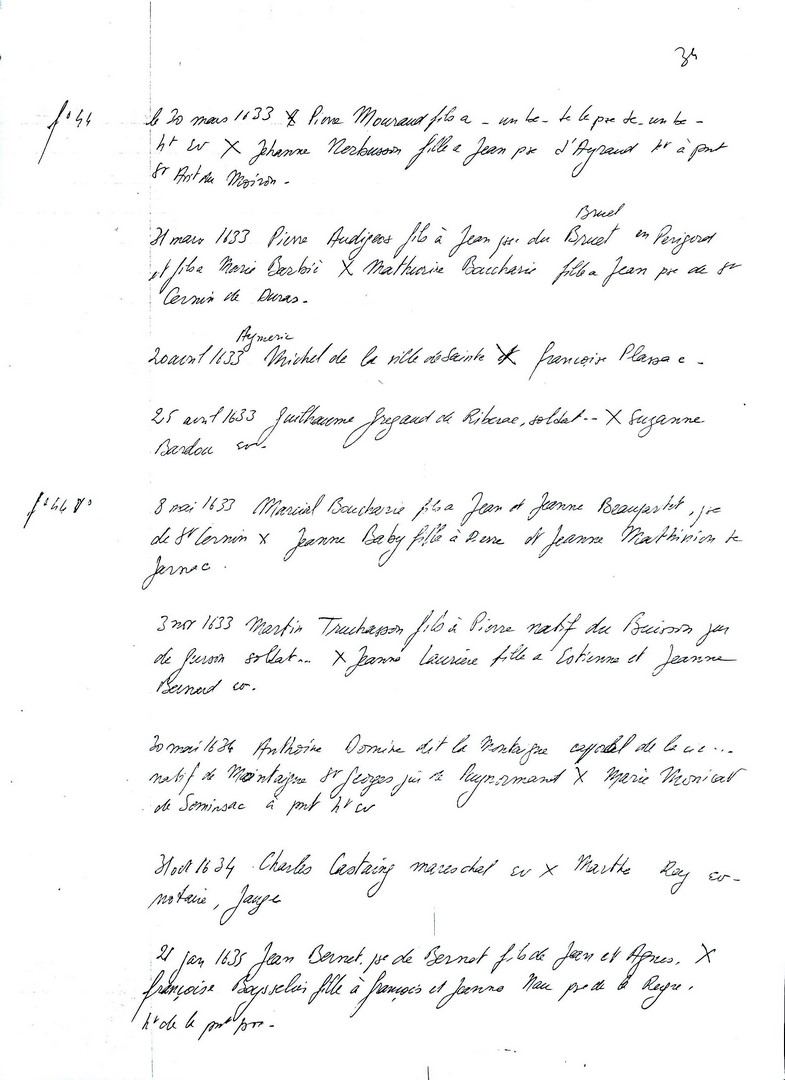 34
f° 44
le 20 mars 1633 X Pierre Mouraud fils a - un be - te le pre de un be -
ht ev X Jehanne Nerbusson fille a Jean pre d'Ayraud ht à pnt
St Ant du Moiron.
Bruel
31 mars 1633 Pierre Audigeos fils à Jean du Bruet en Perigord
et fils a Marie Barbié X Mathurine Boucharie fille a Jean pre de St
Cernin de Duras.
Aymeric
20 avril 1633 Michel de la ville de Sainte X françoise Plassac -
25 avril 1633 Guilhaume Gregaud de Riberac, soldat -- X Suzanne
Bardou ev.
f° 44 v°
8 mai 1633 Marcial Boucharie fils a Jean et Jeanne, pre
de St Cernin X Jeanne Baby fille à Pierre et Jeanne Mathivion de
Jarnac.
3 nov 1633 Martin Truchasson fils à Pierre natif du Buisson jur
de Gurson soldat... X Jeanne Lauriere fille a Estienne et Jeanne
Bernard ev.
30 mai 1634 Anthoine Domine dit la Montagne caporal de la cie...
natif de Montagne St Georges jur de Puynormand X Marie Monicat
de Sominsac à pnt ht ev
31 oct 1634 Charles Castaing mareschal ev X Marthe Rey ev -
notaire, Jauge
21 jan 1635 Jean Bernet, pre de Bernet fils de Jean et Agnes, X
françoise Bayssel fille à françois et Jeanne Nau pre de la
ht de la pnt